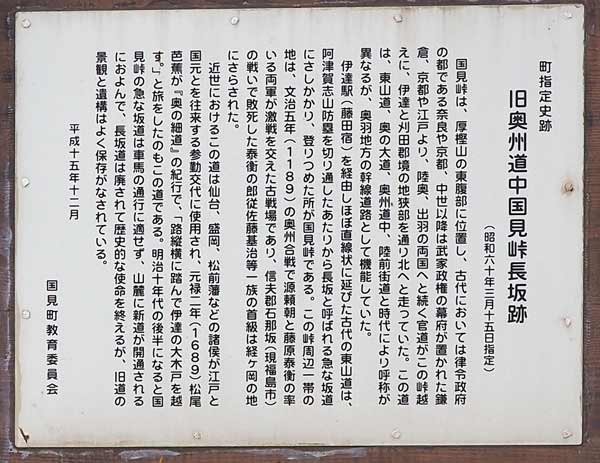 町指定史跡
旧奥州道中国見峠長坂跡
(昭和六十年三月十五日指定)
国見峠は、厚樫山の東腹部に位置し、古代においては律令政府
の都である奈良や京都、中世以降は武家政権の幕府が置かれた鎌
倉、京都や江戸より、陸奥、出羽の両国へと続く官道がこの峠越
えに、伊達と刈田郡境の地狭部を通り北へと走っていた。この道
は、東山道、奥の大道、奥州道中、陸前街道と時代により呼称が
異なるが、奥羽地方の幹線道路として機能していた。
伊達駅(藤田宿)を経由しほぼ直線状に延びた古代の東山道は、
阿津賀志山防塁を切り通したあたりから長坂と呼ばれる急な坂道
にさしかかり、登りつめた所が国見峠である。この峠周辺一帯の
地は、文治五年(1189)の奥州合戦で源頼朝と藤原泰衡の率
いる両軍が激戦を交えた古戦場であり、信夫郡石那坂(現福島市)
の戦いで敗死した泰衡の郎従佐藤基治等一族の首級は経ヶ岡の地
にさらされた。
近世におけるこの道は仙台、盛岡、松前藩などの諸侯が江戸と
国元とを往来する参勤交代に使用され、元禄二年(1689)松尾
芭蕉が『奥の細道』の紀行で、「路縦横に踏んで伊達の大木戸を越
す。」と旅をしたのもこの道である。明治十年代の後半になると国
見峠の急な坂道は車馬の通行に適せず、山麓に新道が開通される
におよんで、長坂道は廃されて歴史的な使命を終えるが、旧道の
景観と遺構はよく保存がなされている。
平成十五年十二月
国見町教育委員会